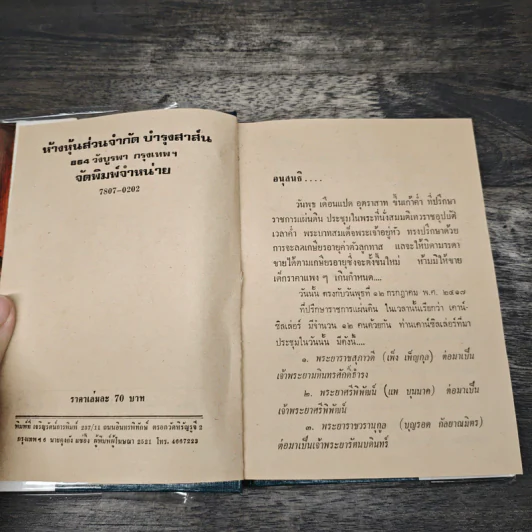 ห้างหุ้นส่วนจำกัด บำรุงสาส์น
884 วังบูรพา กรุงเทพฯ
จัดพิมพ์จำหน่าย
7807-0202
ราคาเล่มละ 70 บาท
พิมพ์ที่ เจริญรัตน์การพิมพ์
กรุงเทพฯ 2521 โทร. 4667222
อนุสนธิ....
วันพุธ เดือนแปด อุตราสาฬห ขึ้นเก้าค่ำ ที่ปรึกษา
ราชการแผ่นดิน ประชุมในพระที่นั่งสมมติเทวราชอุปบัติ
เวลาค่ำ พระบาทสมเด็จพระเจ้าอยู่หัว ทรงปรึกษาด้วย
การจะลดเกษียรอายุค่าตัวลูกทาส และให้บิดามารดา
ขายได้ตามเกษียรอายุซึ่งจะตั้งขึ้นใหม่ ห้ามมิให้ขาย
เด็กราคาแพง ๆ เกินกำหนด....
วันนั้น ตรงกับวันพุธที่ ๑๒ กรกฎาคม พ.ศ. ๒๔๑๗
ที่ปรึกษาราชการแผ่นดิน ในเวลานั้นเรียกว่า เคาน์-
ซิลเล่อร์ มีจำนวน ๑๒ คนด้วยกัน ท่านเค้าน์ซิลเล่อร์ที่มา
ประชุมในวันนั้น มีดังนี้....
๑. พระยาราชสุภาวดี (เพ็ง เพ็ญกุล) ต่อมาเป็น
เจ้าพระยามหินทรศักดิ์ธำรง
๒. พระยาศรีพิพัฒน์ (แพ บุนนาค) ต่อมาเป็น
เจ้าพระยาศรีพิพัฒน์
๓. พระยาราชวรานุกูล (บุญรอด กัลยาณมิตร)
ต่อมาเป็นเจ้าพระยารัตนบดินทร์